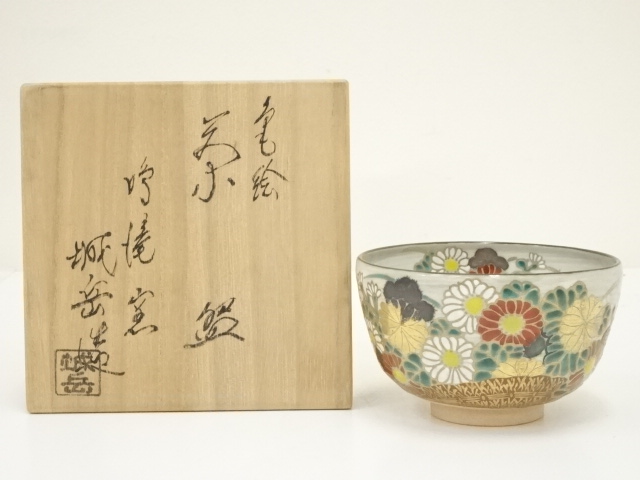 色絵
茶碗
鳴滝窯
城岳造
城岳